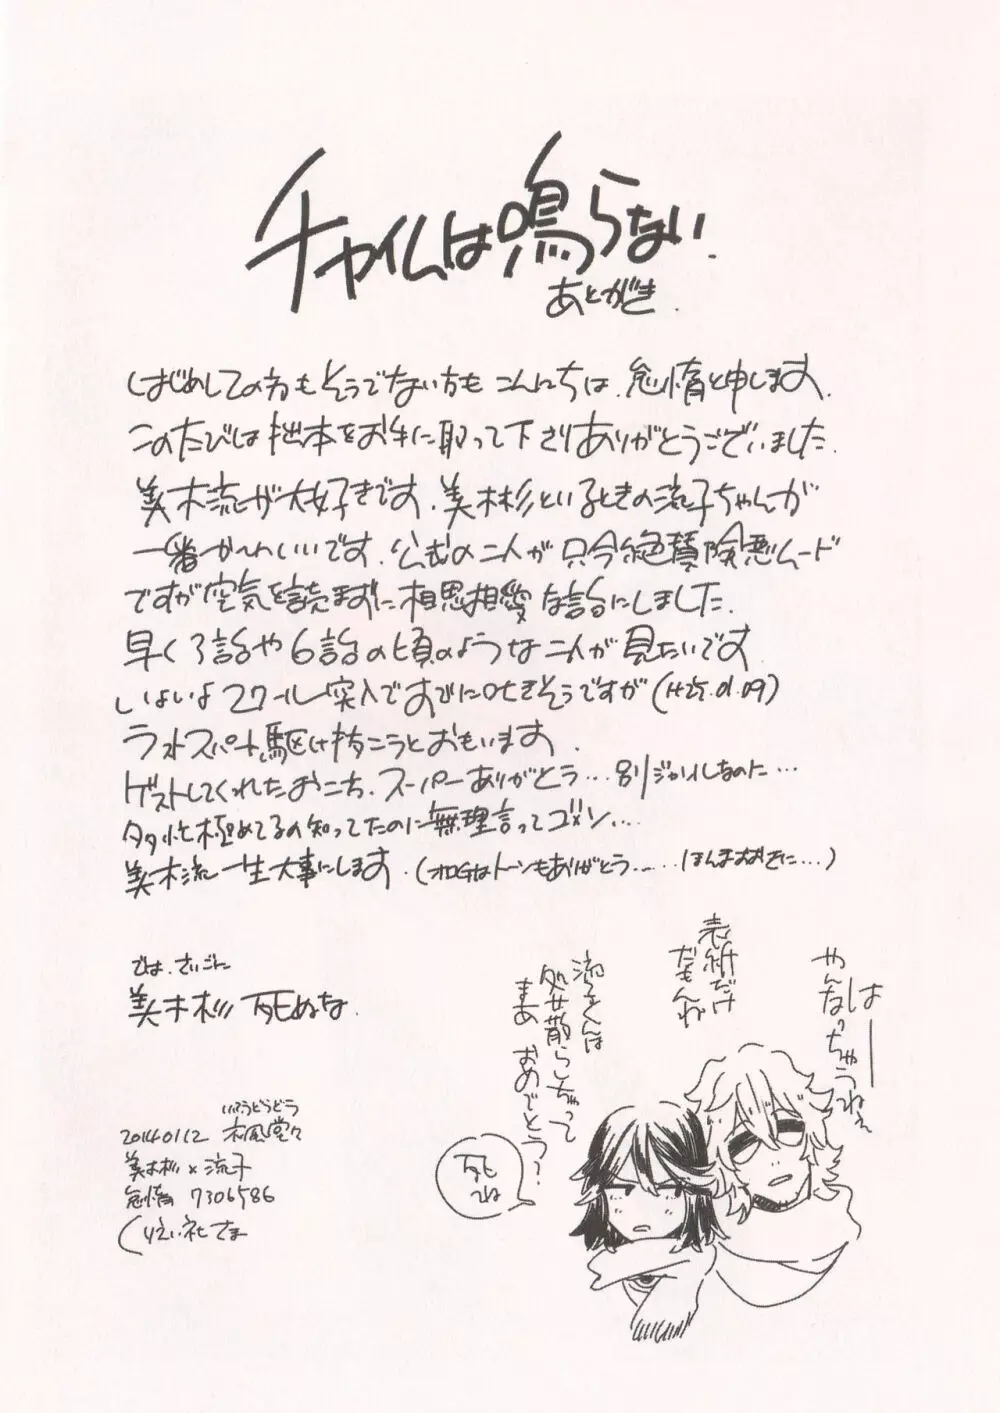 チャイムは鳴らない.
あとがき.
はじめしての方もそうでない方も こんにちは. 怠惰と申します.
このたびは拙本をお手に取って下さりありがとうございました.
美木流が大好きです. 美木杉といるときの流子ちゃんが
一番かわいいです. 公式の二人が 只今絶賛険悪ムード
ですが空気を読まずに相思相愛な話にしました.
早く3話や6話の頃のような二人が見たいです
いよいよ2クール突入ですでに吐きそうですが (H25.01.09)
ラストスパート駆け抜こうとおもいます.
ゲストしてくれたおこち. スーパーありがとう... 別ジャンルなのに...
多忙極めてるの知ってたのに無理言ってゴメン...
美木流一生大事にします. (トーンもありがとう...... ほんまおおきに...)
では. さいごに
美木杉 死ぬな.
いっぷうどうどう
20140112 一風堂々
美木杉×流子
怠惰 7306586
くりえい社さま
はー
やんなっちゃうねぇ
表紙だけだもんね
流子くんは
処女散らしちゃって
まあ おめでとう？
死ね